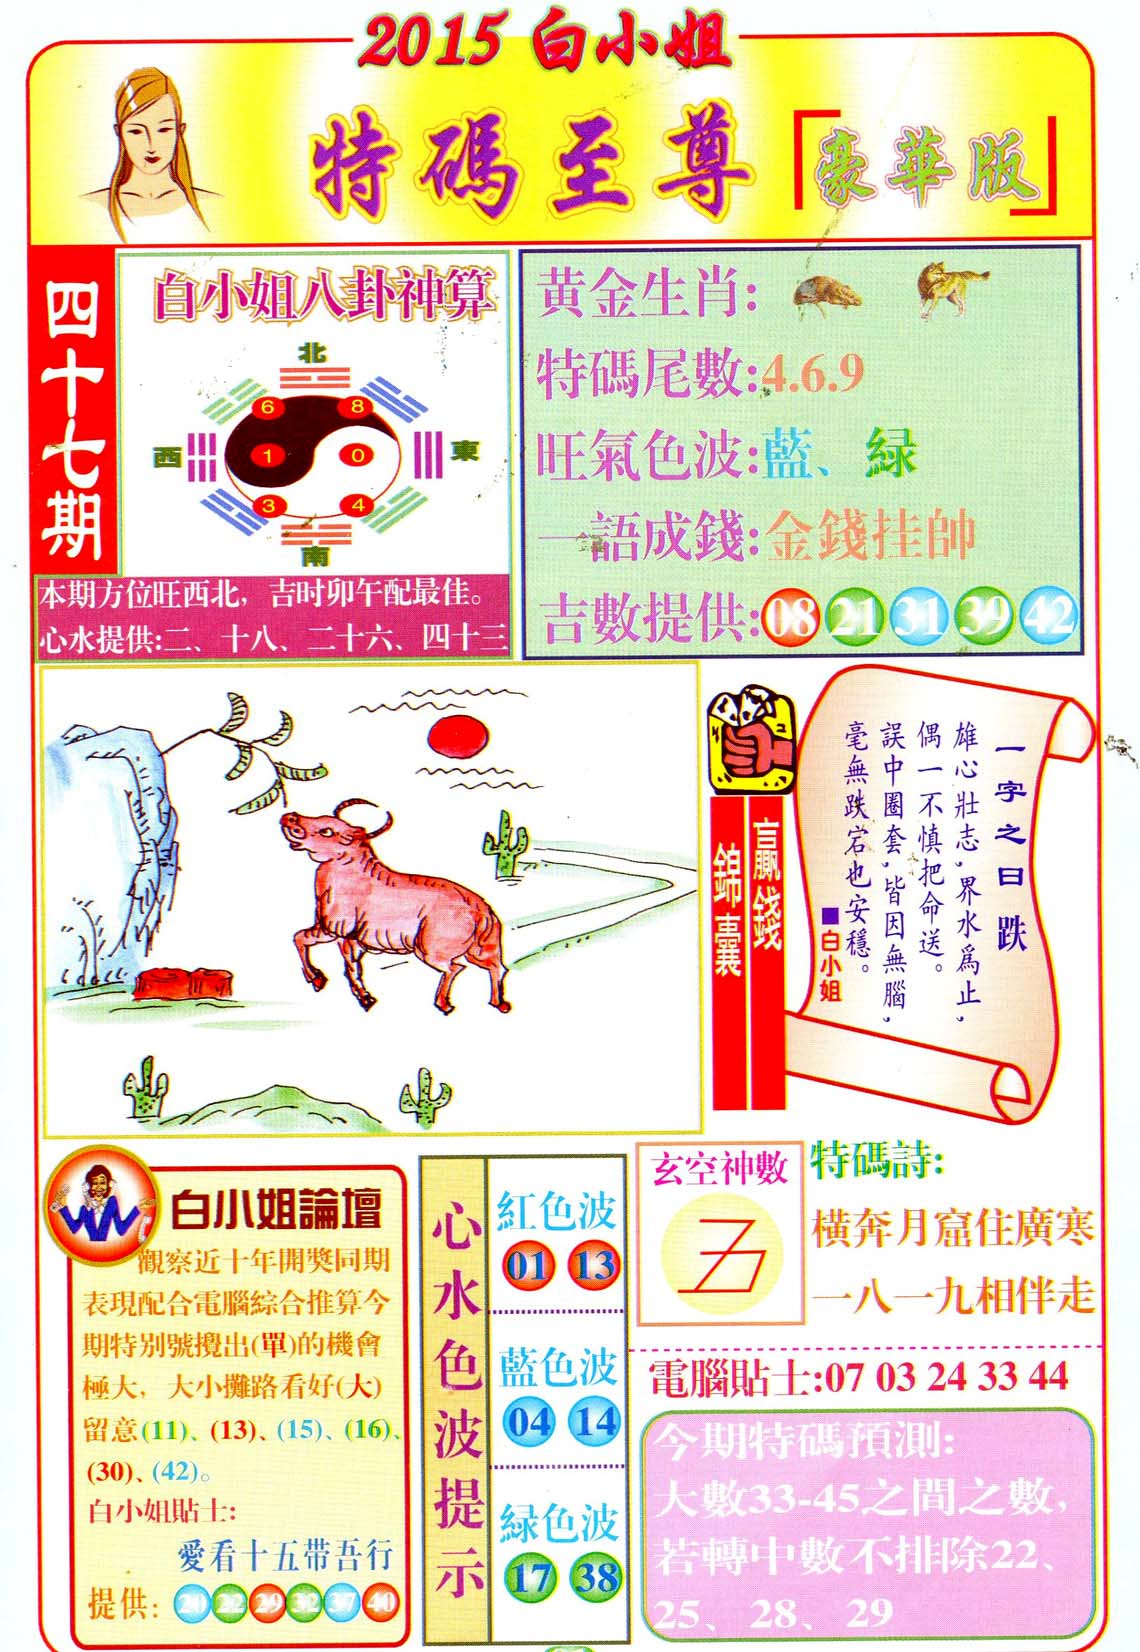 2015 白小姐
特碼至尊「豪華版」
四十七期
白小姐八卦神算
北
6 8
西 1 0 東
3 4
南
本期方位旺西北，吉时卯午配最佳。
心水提供:二、十八、二十六、四十三
黄金生肖:
特碼尾數:4.6.9
旺氣色波:藍、緑
一語成錢:金錢挂帥
吉數提供:08 21 31 39 42
贏錢
錦囊
一字之曰 跌
雄心壯志,界水爲止,
偶一不慎把命送。
誤中圈套,皆因無腦,
毫無跌宕也安穩。
■白小姐
白小姐論壇
觀察近十年開獎同期
表現配合電腦綜合推算今
期特别號攪出(單)的機會
極大，大小攤路看好(大)
留意(11)、(13)、(15)、(16)、
(30)、(42)。
白小姐貼士:
愛看十五带吾行
提供: 20 22 29 32 37 40
心水色波提示
紅色波
01 13
藍色波
04 14
緑色波
17 38
玄空神數
特碼詩:
橫奔月窟住廣寒
一八一九相伴走
電腦貼士:07 03 24 33 44
今期特碼預測:
大數33-45之間之數，
若轉中數不排除22、
25、28、29